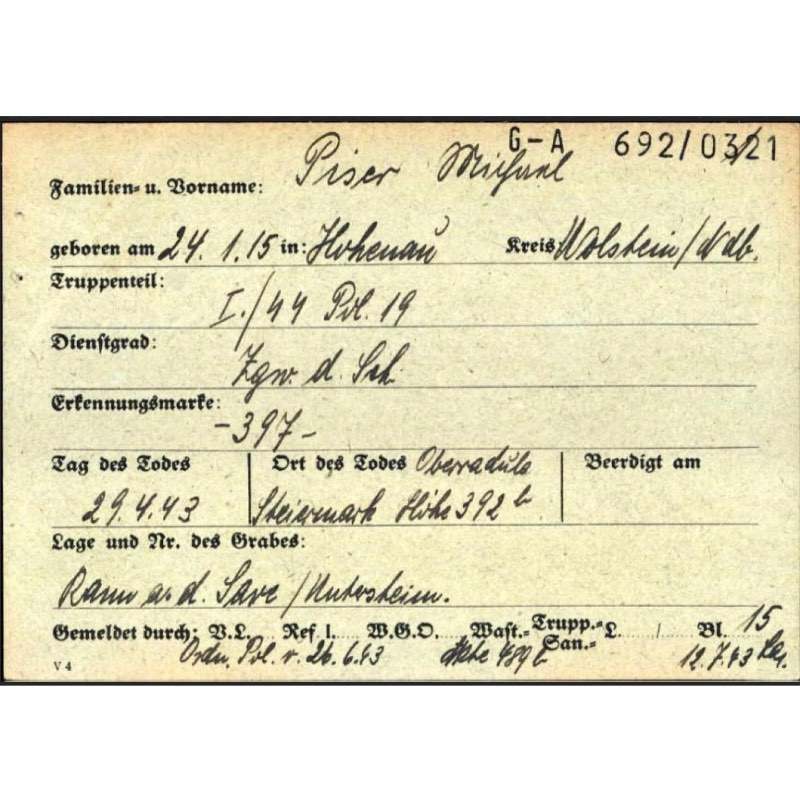 G-A 692/0321
Familien- u. Vorname: Piser Michael
geboren am 24. 1. 15 in: Hohenau Kreis Wolstein/Ndb.
Truppenteil:
I./44 Pol. 19
Dienstgrad:
Zgw. d. Sch.
Erkennungsmarke:
-397-
Tag des Todes Ort des Todes Oberradula Beerdigt am
29.4.43 Steiermark Höhe 392
Lage und Nr. des Grabes:
Rann a. d. Save /Untersteierm.
Gemeldet durch: V.L. Ref I. W.G.O. Wast.= Trupp.= San.= L. Bl. 15
Ordn. Pol. v. 26.6.43 Akte 489 12.7.43
V 4